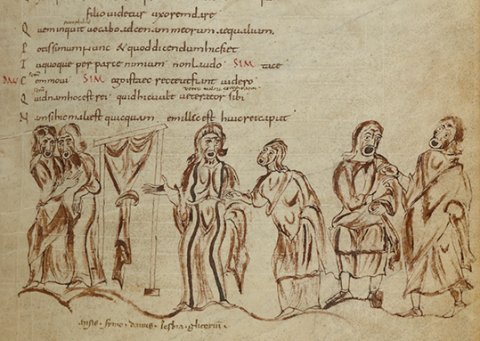 filio videtur uxorem dare
Quem inquit vocabo ad cenam meorum aequalium.
Potissimum nunc & quod dicendum hic siet
Tu quoque per parce nimium non laudo SIM tace
Commovi SIM ego istaec recte ut fiant videro
Quid nam hoc est rei quid hic vult veterator sibi
Nam si hic mali est quicquam em illic est huic rei caput
mysis · symo · davus · lesbia · glicerium